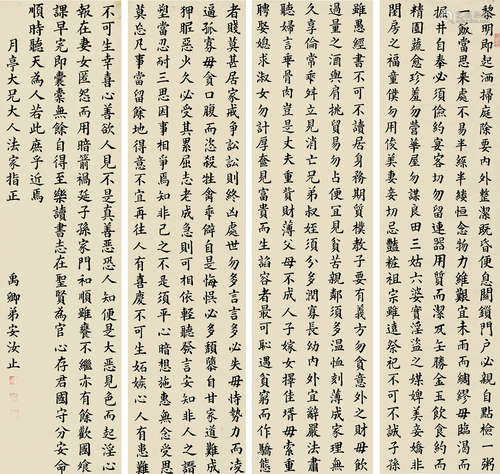 黎明即起洒掃庭除要內外整潔既昏便息關鎖門戶必親自點檢一粥
一飯當思來處不易半絲半縷恒念物力維艱宜未雨而綢繆毋臨渴而
掘井自奉必須儉約宴客切勿留連器用質而潔瓦缶勝金玉飲食約而
精愈珍羞勿營華屋勿謀良田三姑六婆實淫盜之媒婢美妾嬌非
閨房之福童僕勿用俊美妻妾切忌豔粧祖宗雖遠祭祀不可不誠子孫
雖愚經書不可不讀居身務期質樸教子要有義方勿貪意外之財毋飲
過量之酒與肩挑貿易勿占便宜見貧苦親鄰須多溫恤刻薄成家理無
久享倫常乖舛立見消亡兄弟叔姪須分多潤寡長幼內外宜辭嚴法肅
聽婦言乖骨肉豈是丈夫重貲財薄父母不成人子嫁女擇佳壻毋索重
聘娶媳求淑女勿計厚奩見富貴而生諂容者最可恥遇貧窮而作驕態
者賤莫甚居家戒爭訟訟則終凶處世勿多言言多必失毋恃勢力而凌
逼孤寡毋貪口腹而恣殺牲禽乖僻自是悔悞必多頹隳自甘家道難成
狎暱惡少久必受其累屈志老成急則可相依輕聽發言安知非人之譖
愬當忍耐三思因事相爭焉知非己之不平心暗想施惠無念受恩
莫忘凡事當留餘地得意不宜再往人有喜慶不可生妒嫉心人有患難
不可生幸喜心善欲人見不是真善惡恐人知便是大惡見色而起淫心
報在妻女匿怨而用暗箭禍延子孫家門和順雖饔飧不繼亦有餘歡國
課早完即囊橐無餘自得至樂讀書志在聖賢為官心存君國守分安命
順時聽天為人若此庶乎近焉
月亭大兄大人法家指正
禹卿弟安汝止